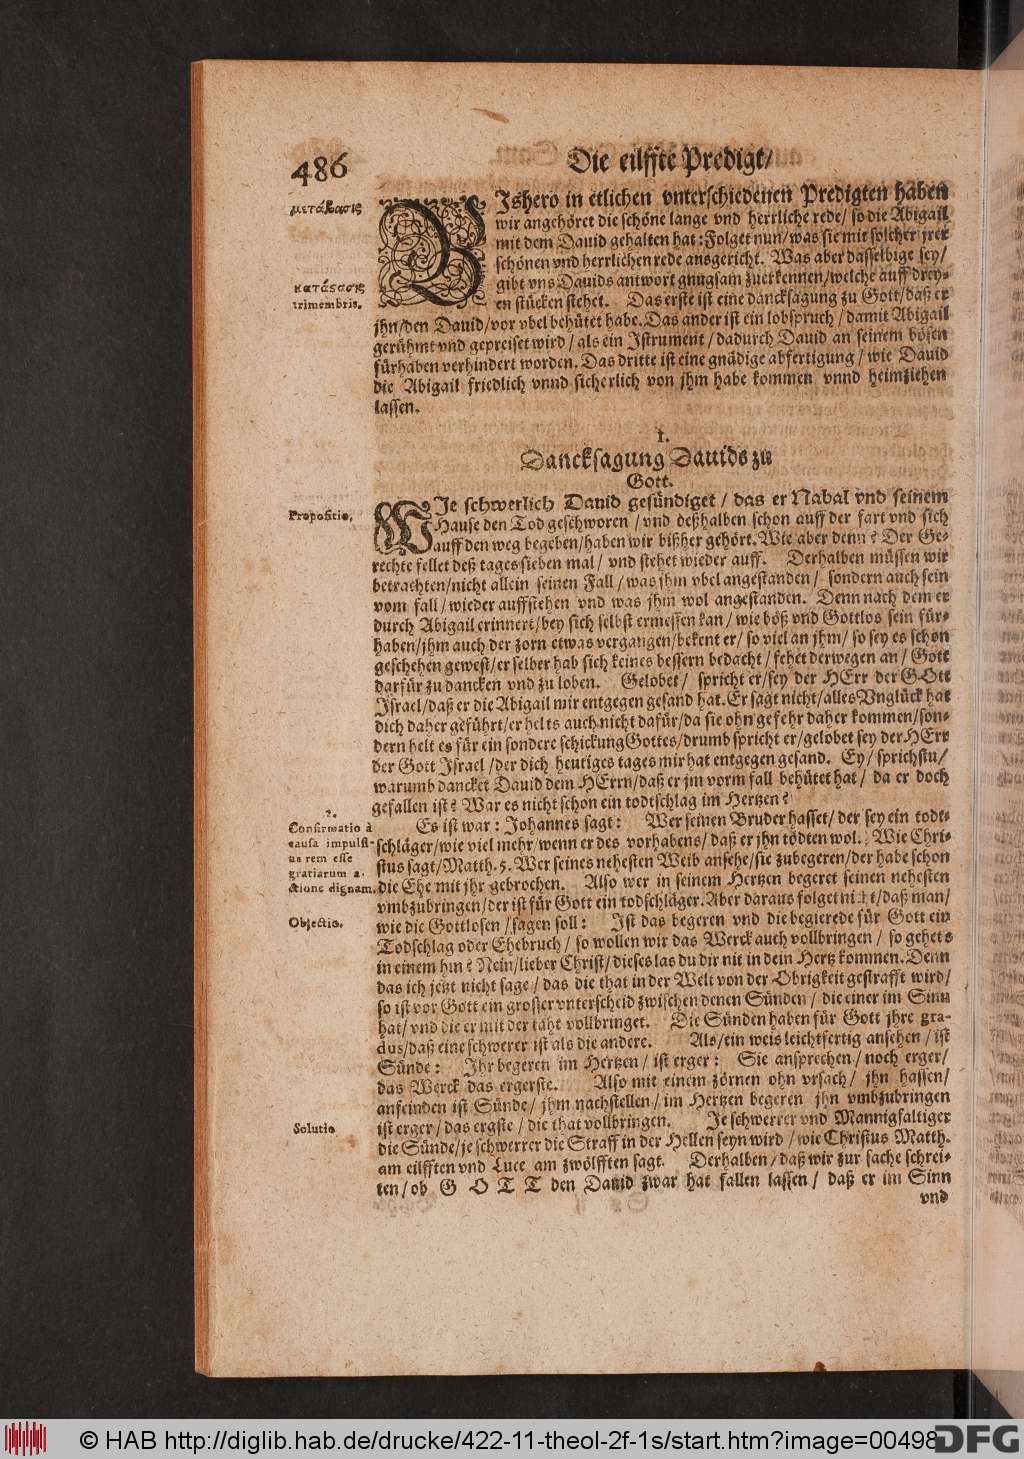 486
Die eilffte Predigt/
μετάβασις
BIshero in etlichen vnterschiedenen Predigten haben
wir angehöret die schöne lange vnd herrliche rede/ so die Abigail
mit dem Dauid gehalten hat: Folget nun/ was sie mit solcher jrer
schönen vnd herrlichen rede ausgericht. Was aber dasselbige sey/
κατάςασις
gibt vns Dauids antwort gnugsam zuerkennen/ welche auff drey-
trimembris.
en stücken stehet. Das erste ist eine dancksagung zu Gott/ daß er
jhn/ den Dauid/ vor vbel behütet habe. Das ander ist ein lobspruch/ damit Abigail
gerühmt vnd gepreiset wird/ als ein Jstrument/ dadurch Dauid an seinem bösen
fürhaben verhindert worden. Das dritte ist eine gnädige abfertigung/ wie Dauid
die Abigail friedlich vnnd sicherlich von jhm habe kommen vnnd heimziehen
lassen.
I.
Dancksagung Dauids zu
Gott.
Propositio.
WIe schwerlich Dauid gesündiget/ das er Nabal vnd seinem
Hause den Tod geschworen/ vnd deßhalben schon auff der fart vnd sich
auff den weg begeben/ haben wir bißher gehört. Wie aber denn? Der Ge-
rechte fellet deß tages sieben mal/ vnd stehet wieder auff. Derhalben müssen wir
betrachten/ nicht allein seinen Fall/ was jhm vbel angestanden/ sondern auch sein
vom fall/ wieder auffstehen vnd was jhm wol angestanden. Denn nach dem er
durch Abigail erinnert/ bey sich selbst ermessen kan/ wie böß vnd Gottlos sein für-
haben/ jhm auch der zorn etwas vergangen/ bekent er/ so viel an jhm/ so sey es schon
geschehen gewest/ er selber hab sich keines bessern bedacht/ fehet derwegen an/ Gott
darfür zu dancken vnd zu loben. Gelobet/ spricht er/ sey der HErr der GOtt
Israel/ daß er die Abigail mir entgegen gesand hat. Er sagt nicht/ alles Vnglück hat
dich daher geführt/ er helts auch nicht dafür/ da sie ohn gefehr daher kommen/ son-
dern helt es für ein sondere schickung Gottes/ drumb spricht er/ gelobet sey der HErr
der Gott Jsrael/ der dich heutiges tages mir hat entgegen gesand. Ey/ sprichstu/
warumb dancket Dauid dem HErrn/ daß er jm vorm fall behütet hat/ da er doch
gefallen ist? War es nicht schon ein todtschlag im Hertzen?
2.
Confirmatio à
causa impulsi-
ua rem esse
gratiarum a-
ctione dignam.
Es ist war: Johannes sagt: Wer seinen Bruder hasset/ der sey ein todt-
schläger/ wie viel mehr/ wenn er des vorhabens/ daß er jhn tödten wol. Wie Chri-
stus sagt/ Matth. 5. Wer seines nehesten Weib ansehe/ sie zubegeren/ der habe schon
die Ehe mit jhr gebrochen. Also wer in seinem Hertzen begeret seinen nehesten
vmbzubringen/ der ist für Gott ein todschläger. Aber daraus folget nicht/ daß man/
Objectio.
wie die Gottlosen/ sagen soll: Ist das begeren vnd die begierede für Gott ein
Todschlag oder Ehebruch/ so wollen wir das Werck auch vollbringen/ so gehets
in einem hin? Nein/ lieber Christ/ dieses las du dir nit in dein Hertz kommen. Denn
das ich jetzt nicht sage/ das die that in der Welt von der Obrigkeit gestrafft wird/
so ist vor Gott ein grosser vnterscheid zwischen denen Sünden/ die einer im Sinn
hat/ vnd die er mit der taht vollbringet. Die Sünden haben für Gott jhre gra-
dus/ daß eine schwerer ist als die andere. Als/ ein weis leichtfertig ansehen/ ist
Sünde: Ihr begeren im Hertzen/ ist erger: Sie ansprechen/ noch erger/
das Werck das ergerste. Also mit einem zörnen ohn vrsach/ jhn hassen/
anfeinden ist Sünde/ jhm nachstellen/ im Hertzen begeren jhn vmbzubringen
Solutio
ist erger/ das ergste/ die that vollbringen. Je schwerrer vnd Mannigfaltiger
die Sünde/ je schwerrer die Straff in der Hellen seyn wird/ wie Christus Matth.
am eilfften vnd Luce am zwölfften sagt. Derhalben/ daß wir zur sache schrei-
ten/ ob GOTT den Dauid zwar hat fallen lassen/ daß er im Sinn
vnd
© HAB http://diglib.hab.de/drucke/422-11-theol-2f-1s/start.htm?image=00498
DFG